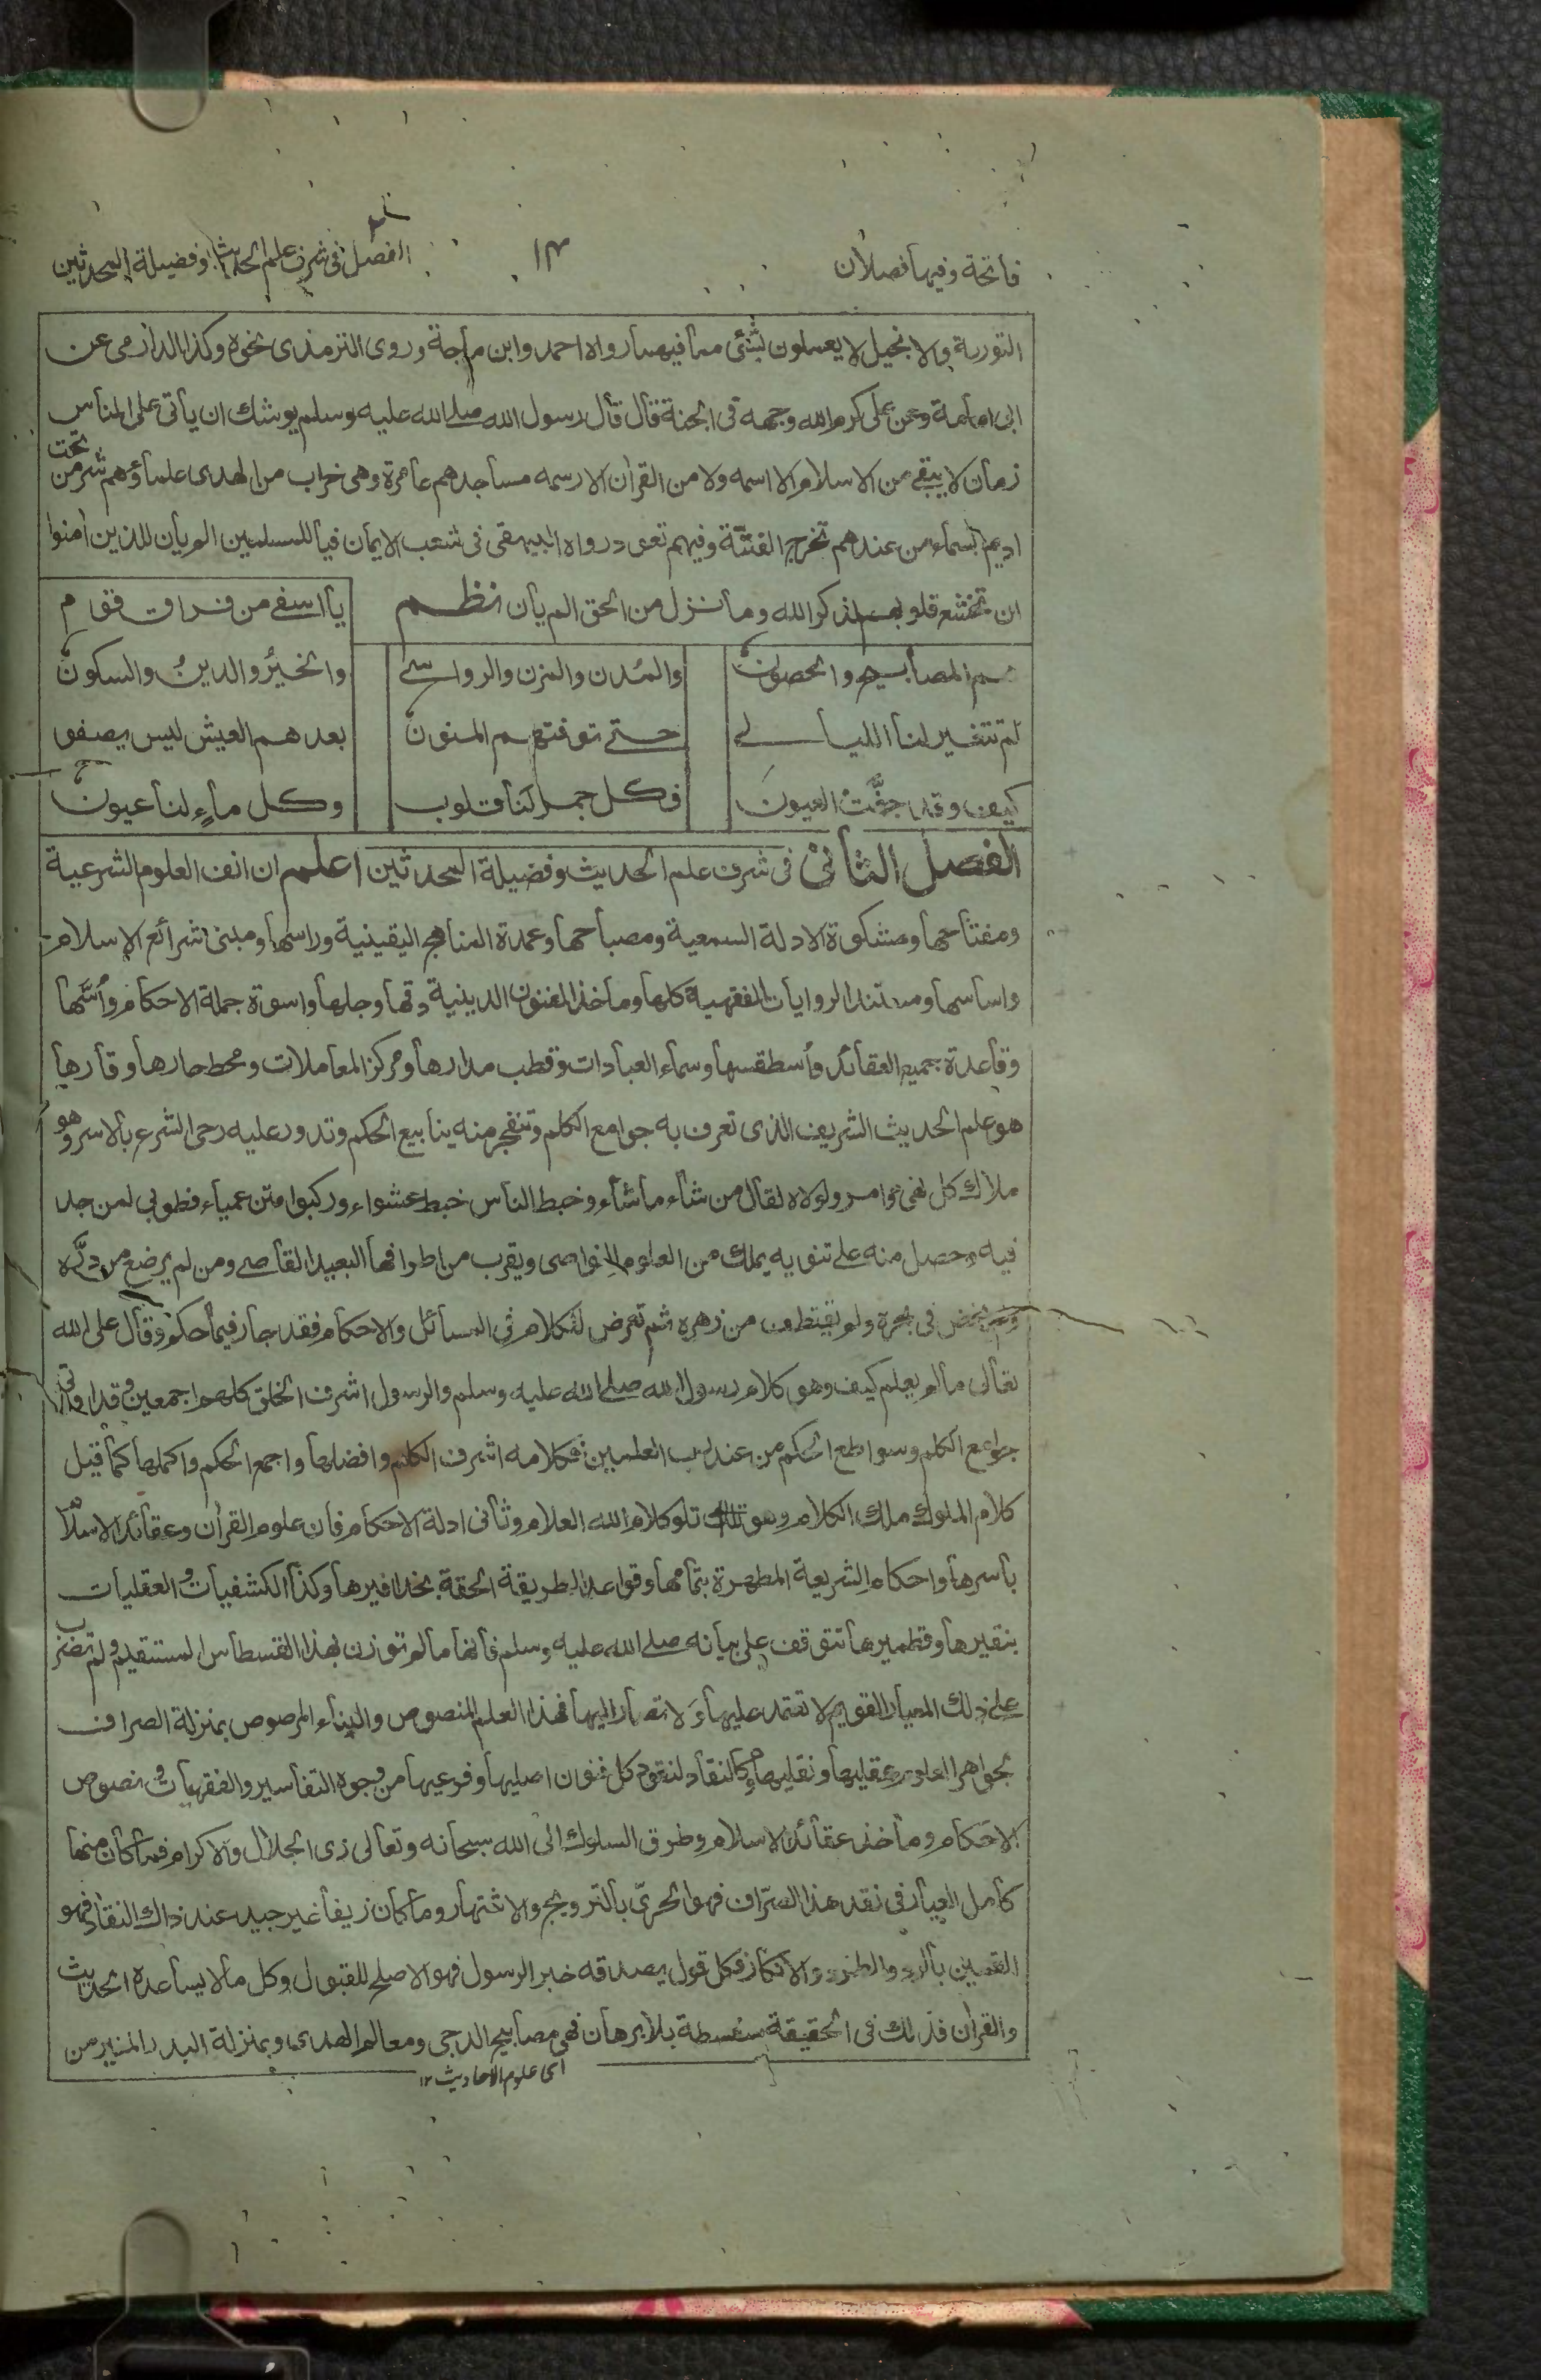 فاتحة وفيها فصلان
١٣
الفصل ٢ فى شرف علم الحديث وفضيلة المحدثين
التورىة والانجيل لا يعملون بشئى مما فيهما رواه احمد وابن ماجة وروى الترمذى نحوه وكذا الدارمى عن
ابى امامة وعن على كرم الله وجهه فى الجنة قال قال رسول الله صلى الله عليه وسلم يوشك ان يأتى على الناس
زمان لا يبقى من الاسلام الا اسمه ولا من القران الا رسمه مساجدهم عامرة وهى خراب من الهدى علماؤهم شر من تحت
اديم السماء من عندهم تخرج الفتنة وفيهم تعود رواه البيهقى فى شعب الايمان فيا للمسلمين الم يأن للذين امنوا
ان تخشع قلوبهم لذكر الله وما نزل من الحق الم يأن نظم يا اسفى من فراق قوم
هم المصابيح والحصون والمدن والمزن والرواسى والخير والدين والسكون
لم تتغير لنا الليالى حتى توفتهم المنون بعدهم العيش ليس يصفو
كيف وقد جفت العيون فكل جمر لنا قلوب وكل ماء لنا عيون
الفصل الثانى فى شرف علم الحديث وفضيلة المحدثين اعلم ان انف العلوم الشرعية
ومفتاحها ومشكوة الادلة السمعية ومصباحها وعمدة المناهج اليقينية وراسها ومبنى شرائع الاسلام
واساسها ومستند الروايات الفقهية كلها وماخذ الفنون الدينية دقها وجلها واسوة جملة الاحكام وأسها
وقاعدة جميع العقائد وأسطقسها وسماء العبادات وقطب مدارها ومركز المعاملات ومحط حارها وقارها
هو علم الحديث الشريف الذى تعرف به جوامع الكلم وتنفجر منه ينابيع الحكم وتدور عليه رحى الشرع بالاسر وهو
ملاك كل نهى وامر ولولاه لقال من شاء ما شاء وخبط الناس خبط عشواء وركبوا متن عمياء فطوبى لمن جد
فيه وحصل منه على تنويه يملك من العلوم النواصى ويقرب من اطرافها البعيد القاصى ومن لم يرضع من دره
ولم يخض فى بحره ولم يقتطف من زهره ثم تعرض للكلام فى المسائل والاحكام فقد جار فيما حكم وقال على الله
تعالى ما لم يعلم كيف وهو كلام رسول الله صلى الله عليه وسلم والرسول اشرف الخلق كلهم اجمعين وقد اوتى
جوامع الكلم وسواطع الحكم من عند رب العلمين فكلامه اشرف الكلم وافضلها واجمع الحكم واكملها كما قيل
كلام الملوك ملك الكلام وهو تلو كلام الله العلام وثانى ادلة الاحكام فان علوم القرأن وعقائد الاسلام
بأسرها واحكام الشريعة المطهرة بتمامها وقواعد الطريقة الحقة بحذافيرها وكذا الكشفيات والعقليات
بنقيرها وقطميرها تتوقف على بيانه صلى الله عليه وسلم فانها ما لم توزن بهذا القسطاس المستقيم ولم تضرب
على ذلك المعيار القويم لا تعتمد عليها ولا تصار اليها فهذا العلم المنصوص والبناء المرصوص بمنزلة الصراف
بجواهر العلوم عقليها ونقليها وكالنقاد لنقود كل فنون اصليها وفرعيها من وجوه التفاسير والفقهيات ونصوص
الاحكام وماخذ عقائد الاسلام وطرق السلوك الى الله سبحانه وتعالى ذى الجلال والاكرام فما كان منها
كامل العيار فى نقد هذا الصراف فهو الحرى بالترويج والاشتهار وما كان زيفا غير جيد عند ذاك النقاد فهو
القمين بالرد والطرد والانكار فكل قول يصدقه خبر الرسول فهو الاصلح للقبول وكل ما لا يساعده الحديث
والقران فذلك فى الحقيقة سفسطة بلا برهان فهى مصابيح الدجى ومعالم الهدى وبمنزلة البدر المنير من
اى علوم الاحاديث ١٢